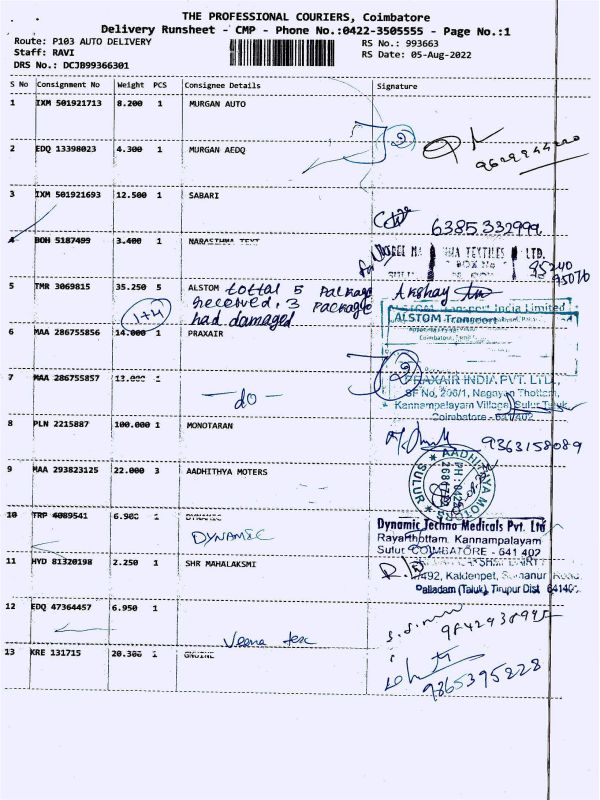 THE PROFESSIONAL COURIERS, Coimbatore
Delivery Runsheet - CMP - Phone No.:0422-3505555 - Page No.:1
Route: P103 AUTO DELIVERY
RS No.: 993663
Staff: RAVI
RS Date: 05-Aug-2022
DRS No.: DCJB99366301
S No Consignment No Weight PCS Consignee Details Signature
1 IXM 501921713 8.200 1 MURGAN AUTO
2 EDQ 13398023 4.300 1 MURGAN AEDQ
3 IXM 501921693 12.500 1 SABARI
6385332999
4 BOH 5187499 3.400 1 NARASIHMA TEXT
TEXTILES LTD.
5 TMR 3069815 35.250 5 ALSTOM tottal 5 Package
received, 3 package
had damaged
1+4
Akshay
ALSTOM Transport India Limited
ALSTOM Transport
6 MAA 286755856 14.000 1 PRAXAIR
7 MAA 286755857 13.000 1
-do-
PRAXAIR INDIA PVT. LTD.,
SF No, 206/1, Nagayan Thottam,
Kannampalayam Village, Sulur Taluk
Coimbatore - 641 402
8 PLN 2215887 100.000 1 MONOTARAN
9363158089
9 MAA 293823125 22.000 3 AADHITHYA MOTERS
AADHITHYA MOTORS
SULUR
10 TRP 4089541 6.900 1 DYNAMIC
DYNAMIC
Dynamic Techno Medicals Pvt. Ltd
Rayarthottam, Kannampalayam
Sulur COIMBATORE - 641 402
11 HYD 81320198 2.250 1 SHR MAHALAKSMI
7/492, Kaldenpet, Semmanur Road,
Palladam (Taluk), Tirupur Dist 64140
12 EDQ 47364457 6.950 1
Veena tex
13 KRE 131715 20.300 1 GNUINE
9865395228